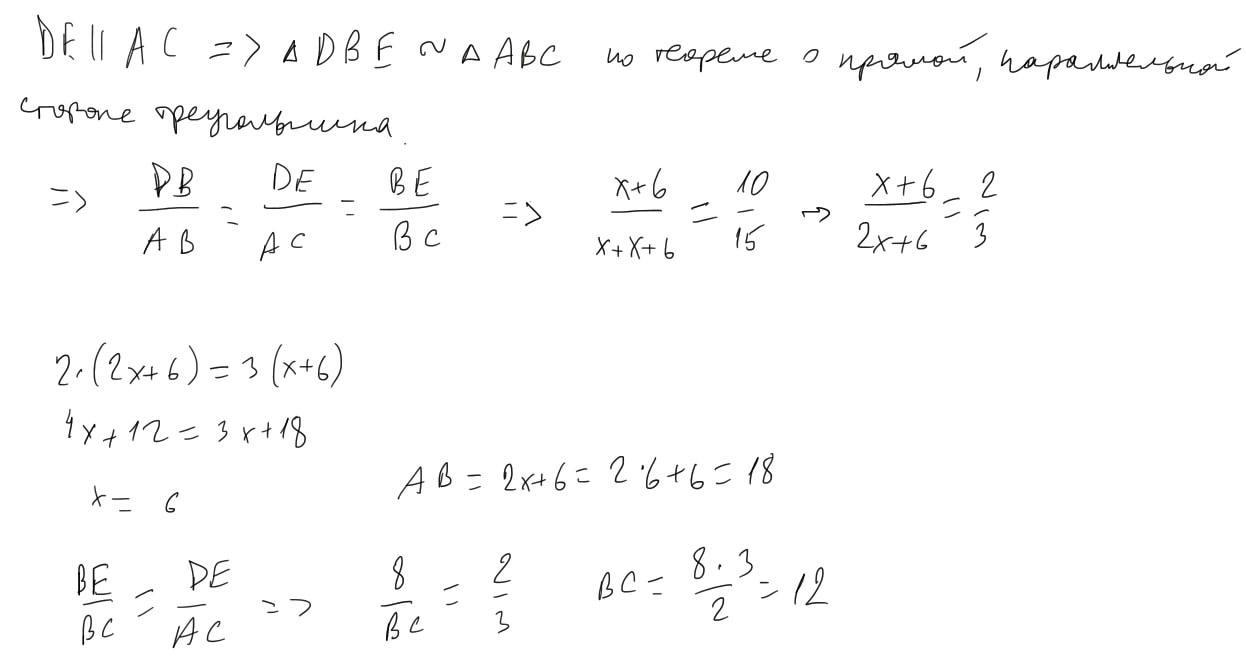 DE || AC => △ DBE ~ △ ABC по теореме о прямой, параллельной
стороне треугольника.
=> DB/AB = DE/AC = BE/BC => x+6/x+x+6 = 10/15 → x+6/2x+6 = 2/3
2·(2x+6) = 3(x+6)
4x+12 = 3x+18
x = 6
AB = 2x+6 = 2·6+6 = 18
BE/BC = DE/AC => 8/BC = 2/3 BC = 8·3/2 = 12